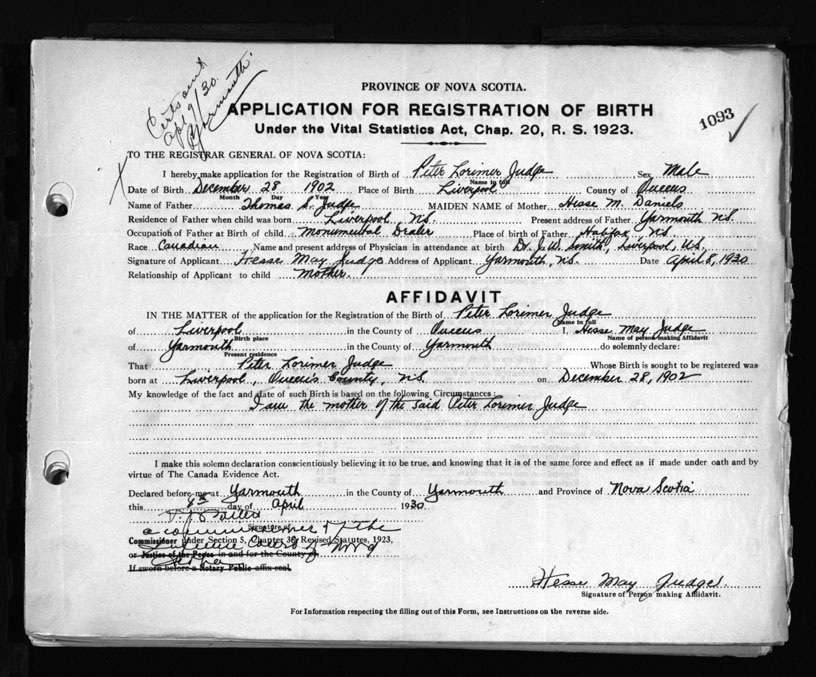 Cert sent
Apl 9/30.
Yarmouth.
PROVINCE OF NOVA SCOTIA.
APPLICATION FOR REGISTRATION OF BIRTH
Under the Vital Statistics Act, Chap. 20, R. S. 1923.
1093
TO THE REGISTRAR GENERAL OF NOVA SCOTIA:
I hereby make application for the Registration of Birth of Peter Lorimer Judge Sex Male
Name in full
Date of Birth December 28 1902 Place of Birth Liverpool County of Queens
Month Day Year
Name of Father Thomas S. Judge MAIDEN NAME of Mother Hesse M. Daniels
Residence of Father when child was born Liverpool, N.S. Present address of Father Yarmouth N.S.
Occupation of Father at Birth of child Monumental Dealer Place of birth of Father Halifax, N.S.
Race Canadian Name and present address of Physician in attendance at birth Dr. J.W. Smith, Liverpool, N.S.
Signature of Applicant Hesse May Judge Address of Applicant Yarmouth, N.S. Date April 8, 1930
Relationship of Applicant to child Mother.
AFFIDAVIT
IN THE MATTER of the application for the Registration of the Birth of Peter Lorimer Judge
Name in full
of Liverpool in the County of Queens I, Hesse May Judge
Birth place Name of person making Affidavit
of Yarmouth in the County of Yarmouth do solemnly declare:
Present residence
That Peter Lorimer Judge Whose Birth is sought to be registered was
born at Liverpool, Queen's County, N.S. on December 28, 1902
My knowledge of the fact and date of such Birth is based on the following Circumstances:
I am the mother of the said Peter Lorimer Judge
I make this solemn declaration conscientiously believing it to be true, and knowing that it is of the same force and effect as if made under oath and by
virtue of The Canada Evidence Act.
Declared before me at Yarmouth in the County of Yarmouth and Province of Nova Scotia
this 8th day of April 1930.
Signature
a commissioner of the
Commissioner under Section 5, Chapter 36, Revised Statutes, 1923,
Supreme Court of
or Justice of the Peace in and for the County of
If sworn before a Notary Public affix seal.
Hesse May Judge.
Signature of Person making Affidavit.
For Information respecting the filling out of this Form, see Instructions on the reverse side.